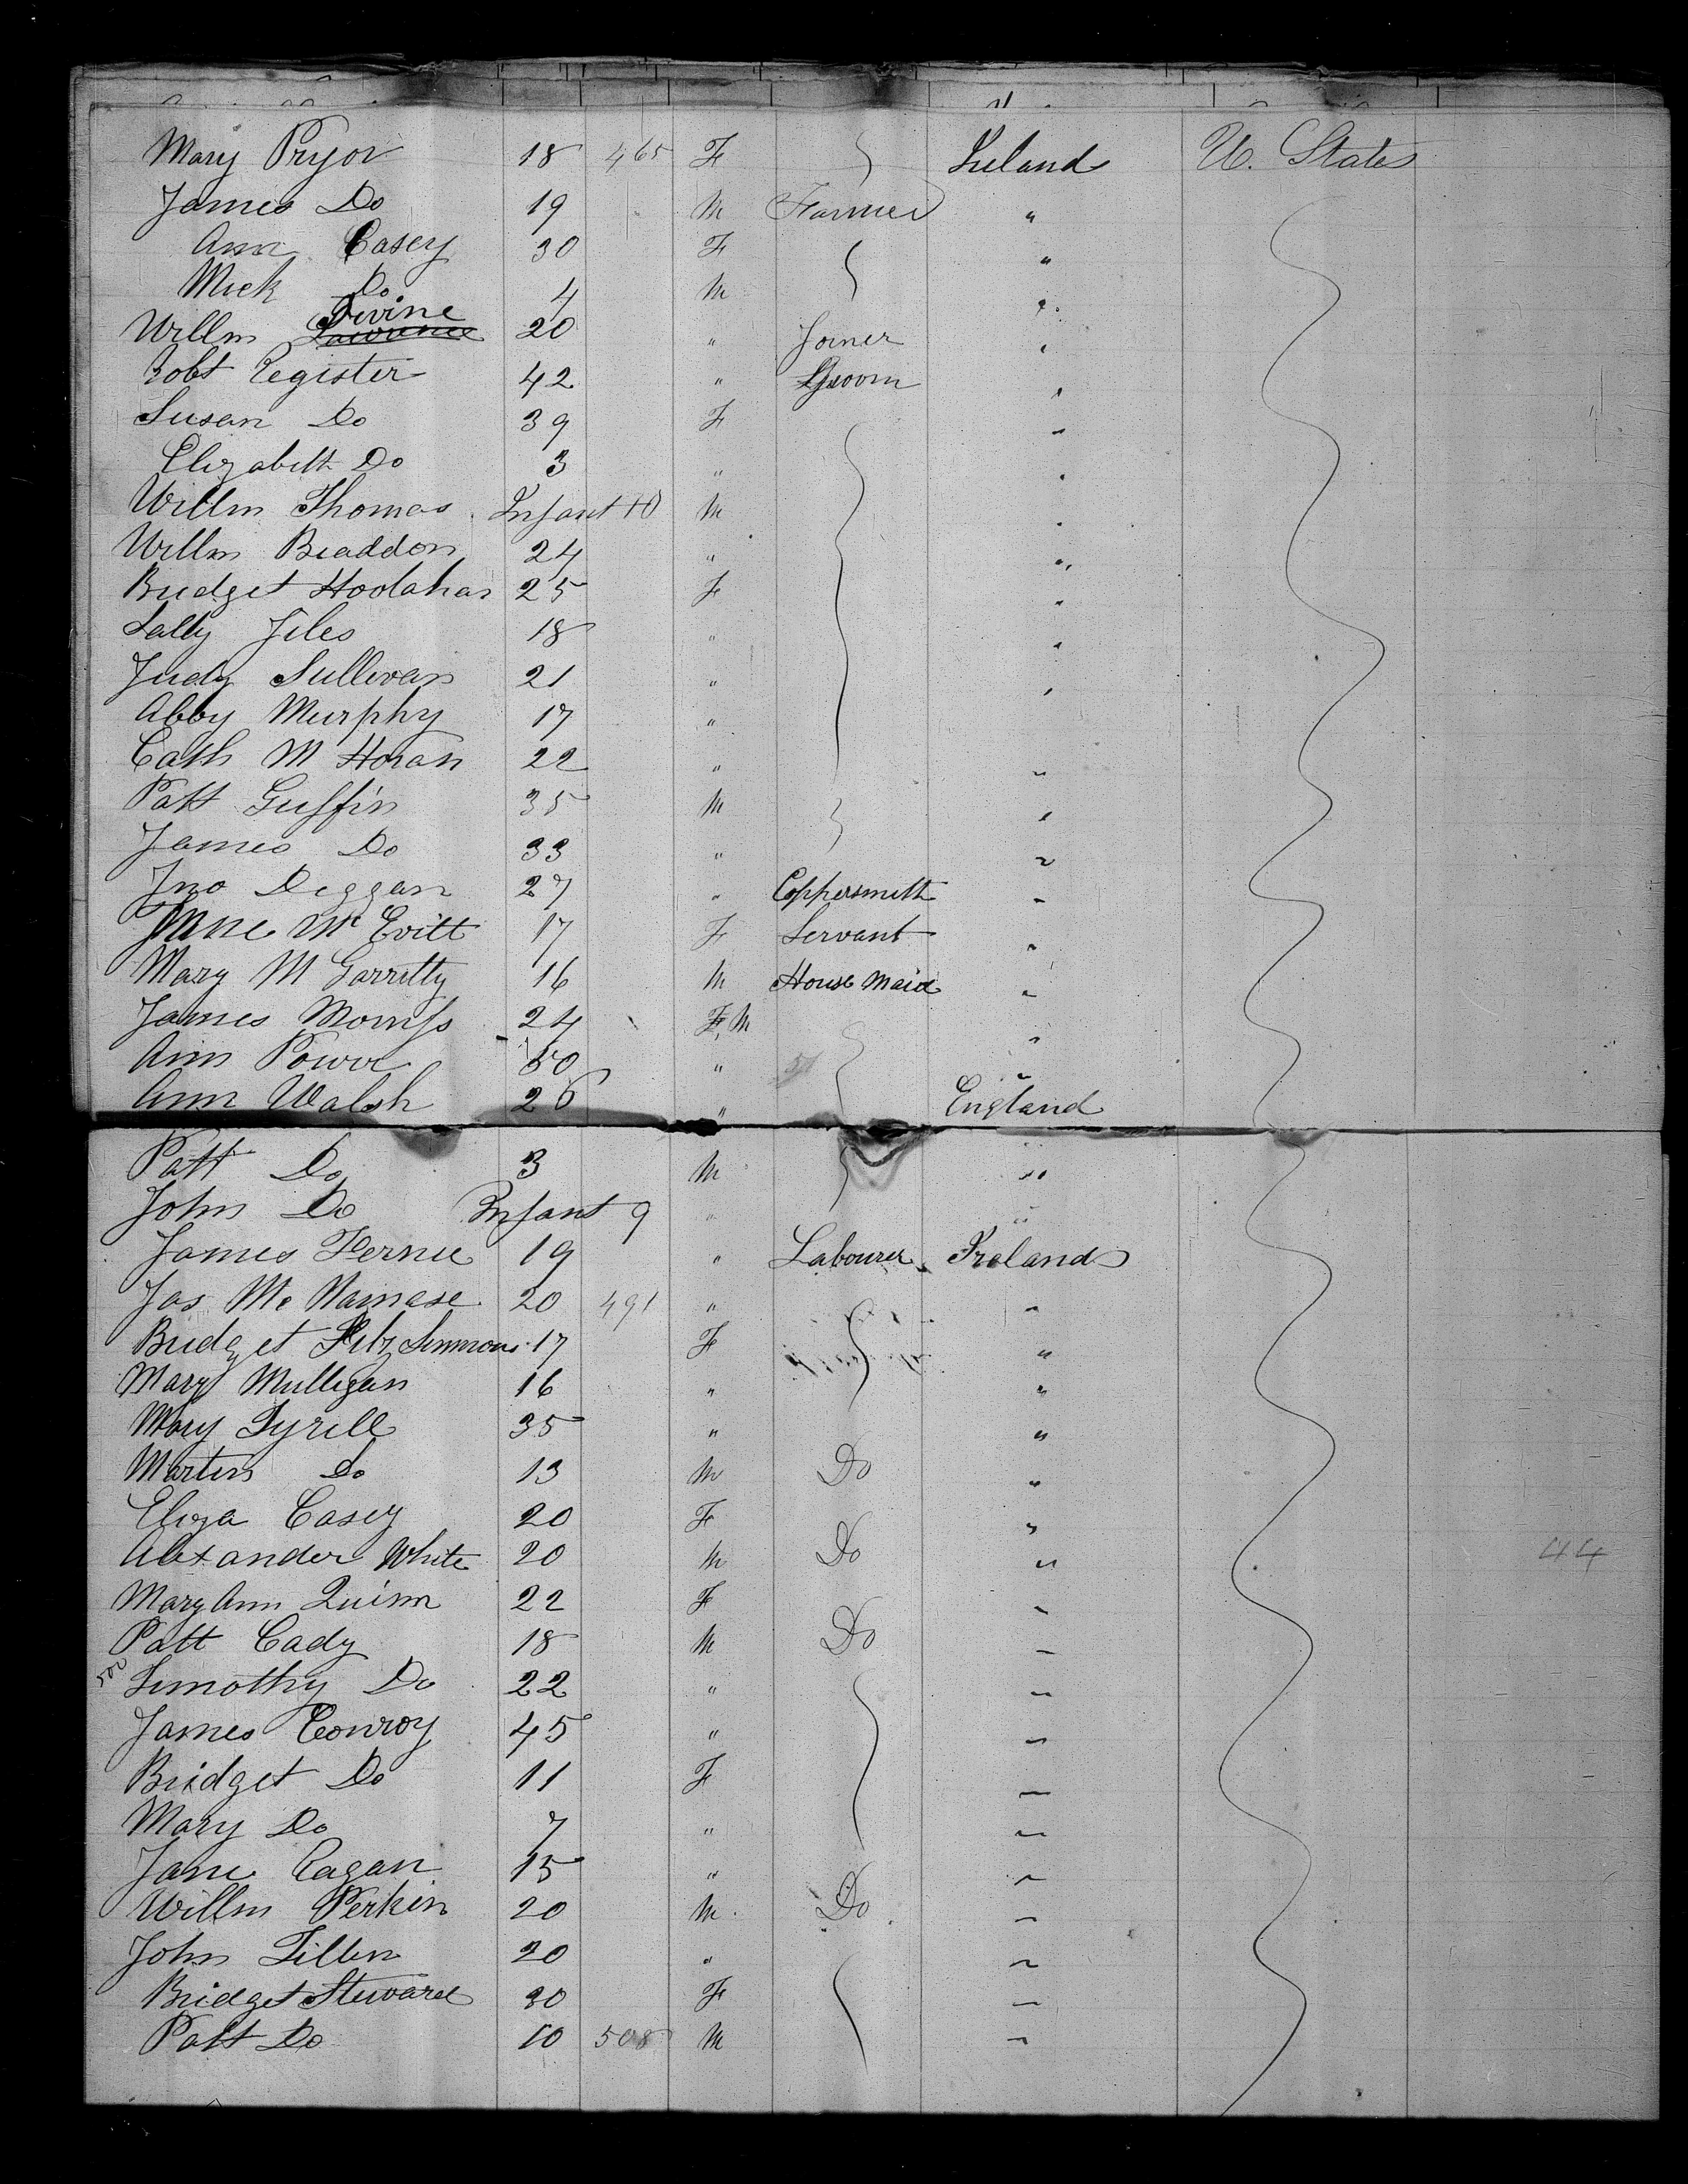 Mary Pryor 18 465 F Ireland U. States
James Do 19 M Farmer "
Ann Casey 30 F "
Mick Do 4 M "
Willm Lawrence Devine 20 " Joiner "
Robt Register 42 " Groom "
Susan Do 39 F "
Elizabeth Do 3 " "
Willm Thomas Infant 10 M "
Willm Braddon 24 " "
Bridget Hoolahan 25 F "
Sally Jiles 18 " "
Judy Sullivan 21 " "
Abby Murphy 17 "
Cath M Horan 22 " "
Patt Griffin 35 M "
James Do 33 " "
Jno Diggan 27 " Coppersmith "
Jane Mc Evitt 17 F Servant "
Mary M Garritty 16 M House Maid "
James 24 F, M "
Ann Power 50 " "
Ann Walsh 26 " England
Patt Do 3 M "
John Do Infant 9 " "
James Fernie 19 " Labourer Ireland
Jas Mc Namase 20 491 " "
Bridget Fitz Simmons 17 F "
Mary Mulligan 16 " "
Mary Tyrell 35 " "
Martin Do 13 M Do "
Eliza Casey 20 F "
Alexander White 20 M Do " 44
Mary Ann Quinn 22 F "
Patt Cady 18 M Do "
500 Timothy Do 22 " "
James Conroy 45 " "
Bridget Do 11 F "
Mary Do 7 " "
Jane Eagan 15 " "
Willm Perkin 20 M Do "
John Tillen 20 " "
Bridget Steward 30 F "
Patt Do 10 508 M "